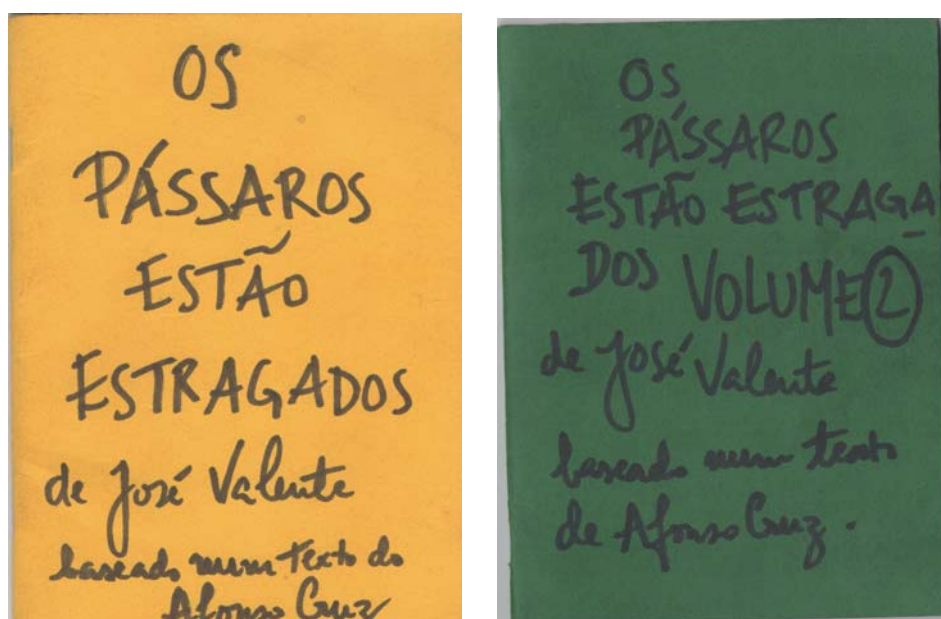 OS
PÁSSAROS
ESTÃO
ESTRAGADOS
de José Valente
baseado num texto do
Afonso Cruz
OS
PÁSSAROS
ESTÃO ESTRAGA
DOS VOLUME 2
de José Valente
baseado num texto
de Afonso Cruz.